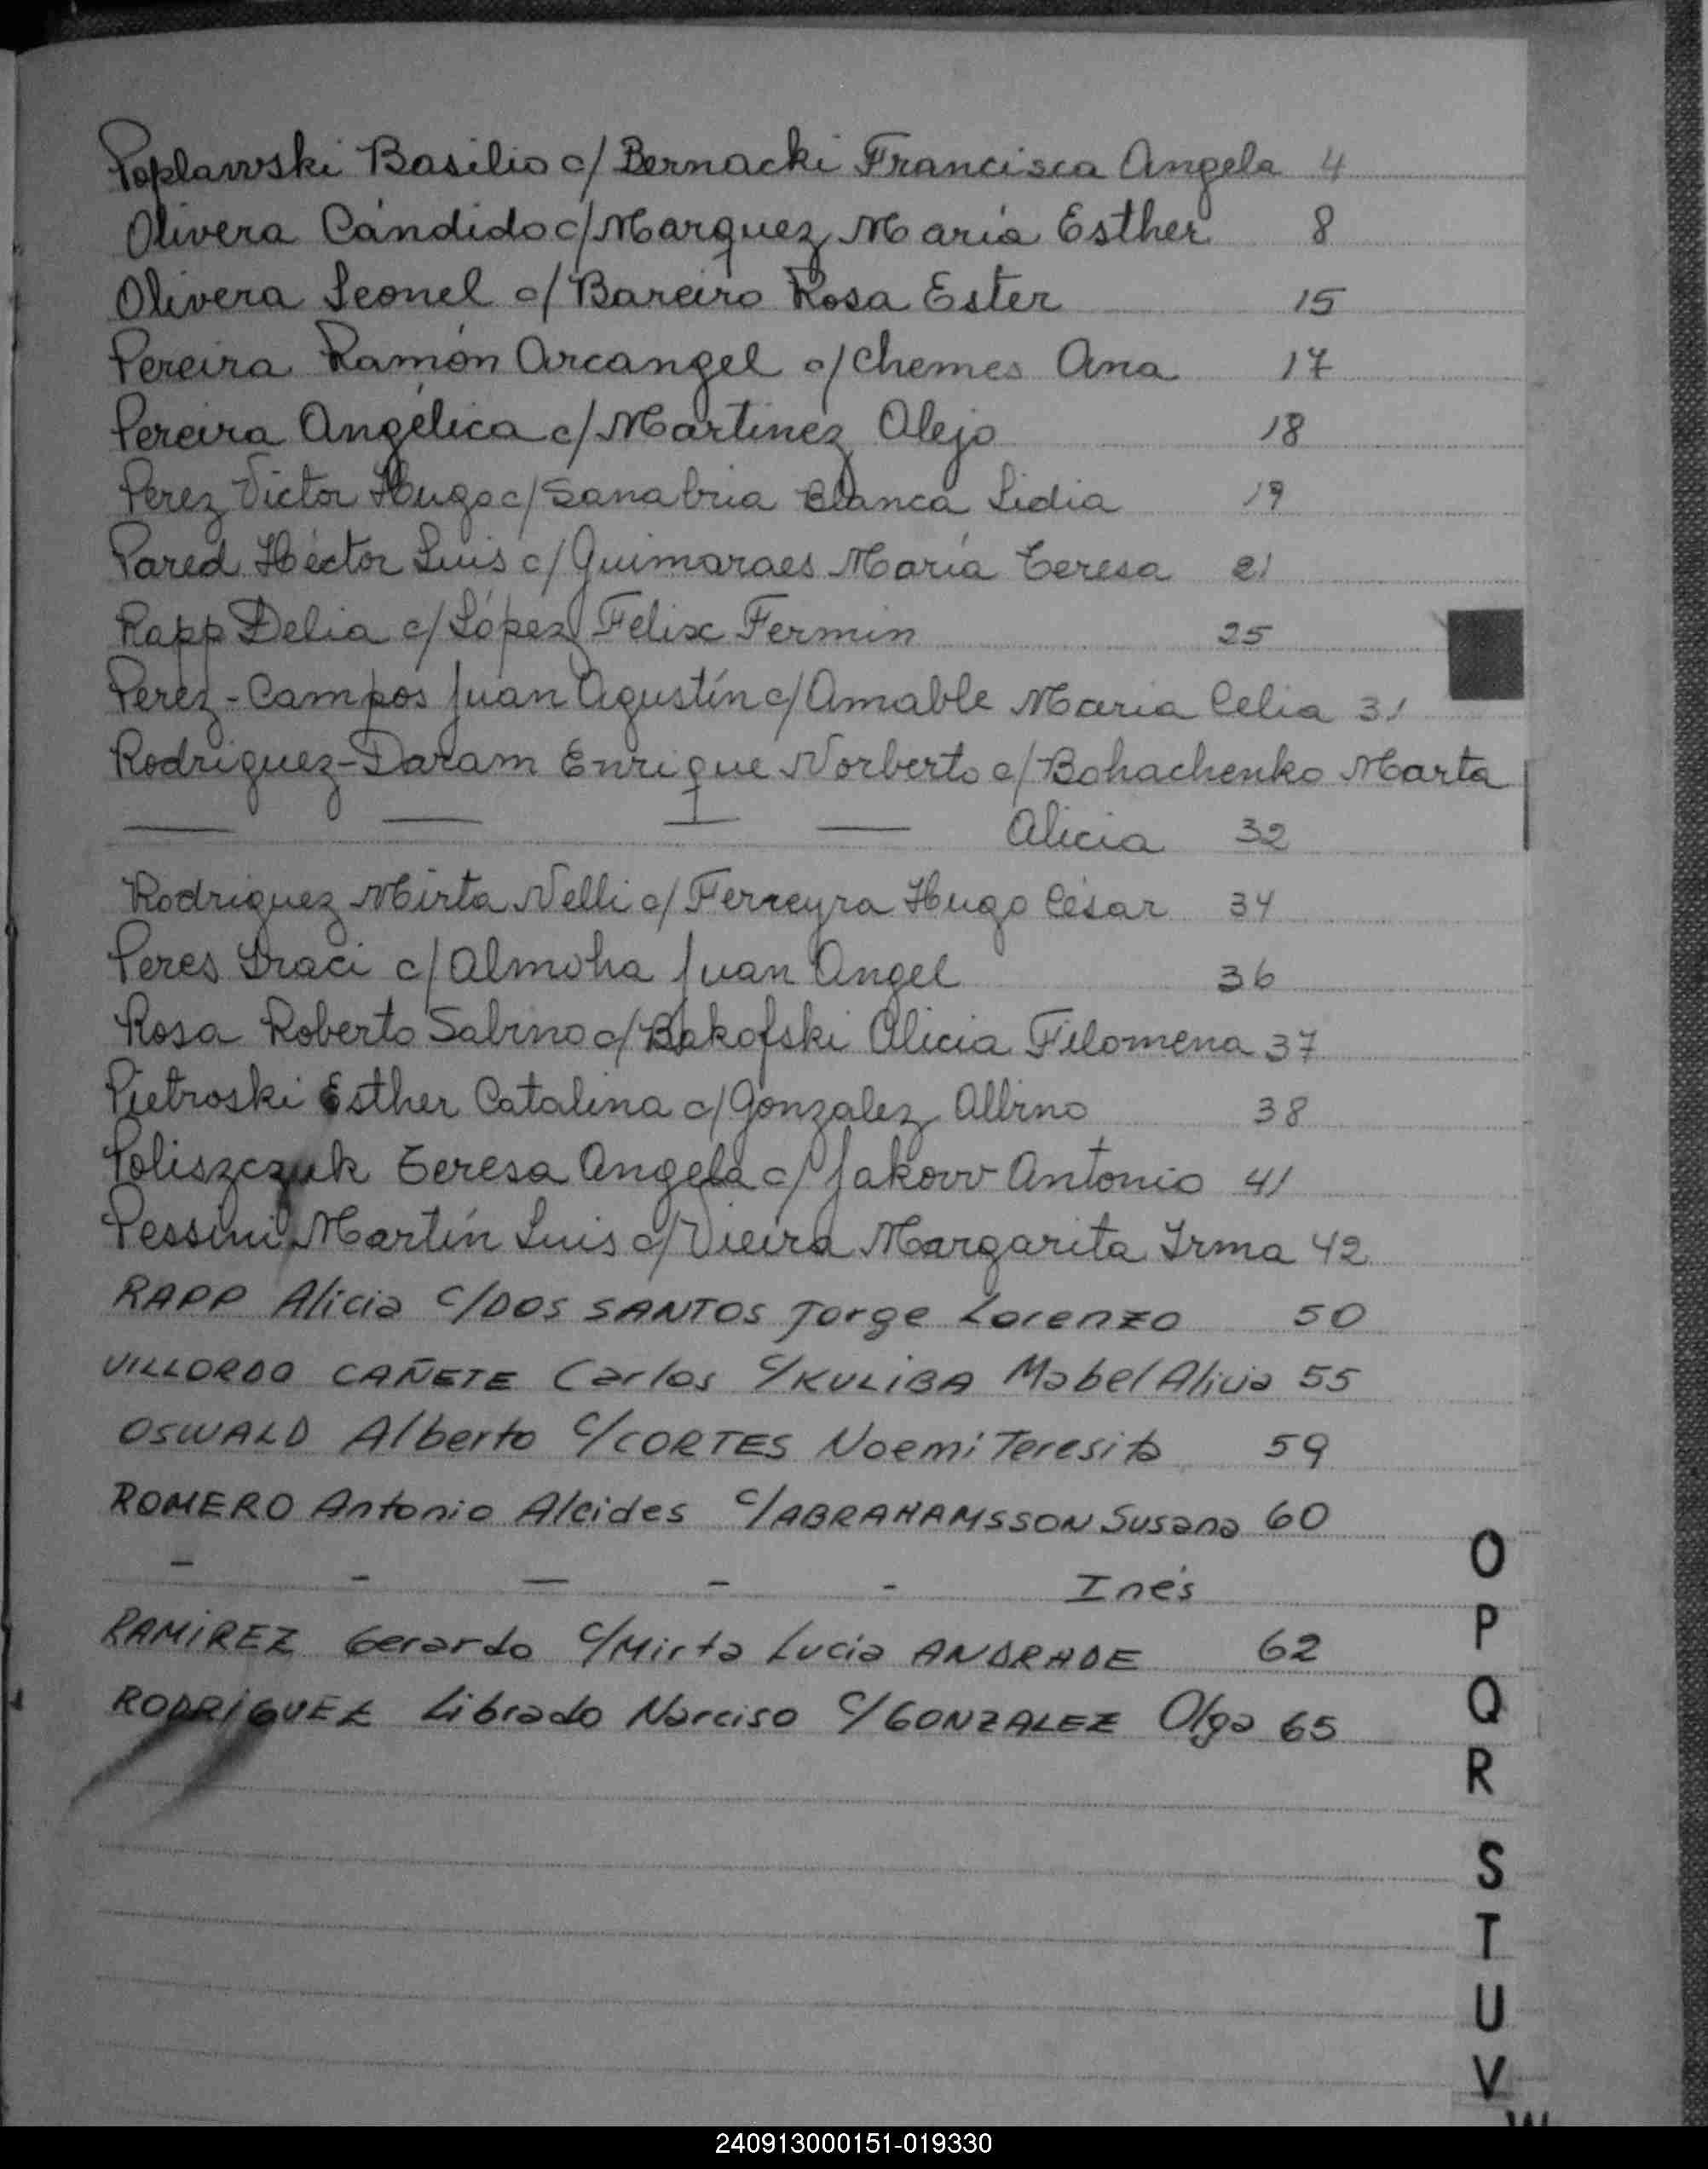 Poplawski Basilio c/ Bernacki Francisca Angela 4
Olivera Cándido c/ Marquez María Esther 8
Olivera Leonel c/ Bareiro Rosa Ester 15
Pereira Ramón Arcangel c/ Chemes Ana 17
Pereira Angélica c/ Martinez Alejo 18
Perez Victor Hugo c/ Sanabria Blanca Lidia 19
Pared Héctor Luis c/ Guimaraes María Teresa 21
Rapp Delia c/ López Felix Fermin 25
Perez-Campos Juan Agustín c/ Amable Maria Celia 31
Rodriguez-Daram Enrique Norberto c/ Bohachenko Marta
— — — — Alicia 32
Rodriguez Mirta Nelli c/ Ferreyra Hugo César 34
Peres Iraci c/ Almoha Juan Angel 36
Rosa Roberto Sabino c/ Bakofski Alicia Filomena 37
Pietroski Esther Catalina c/ Gonzalez Albino 38
Poliszczuk Teresa Angela c/ Jakow Antonio 41
Pessini Martín Luis c/ Vieira Margarita Irma 42
RAPP Alicia C/DOS SANTOS Jorge Lorenzo 50
VILLORDO CAÑETE Carlos C/KULIBA Mabel Alivia 55
OSWALD Alberto C/CORTES Noemi Teresita 59
ROMERO Antonio Alcides C/ABRAHAMSSON Susana 60
- - - - - Inés
RAMIREZ Gerardo C/Mirta Lucia ANDRADE 62
RODRIGUEZ Librado Narciso C/GONZALEZ Olga 65
O
P
Q
R
S
T
U
V
W
240913000151-019330